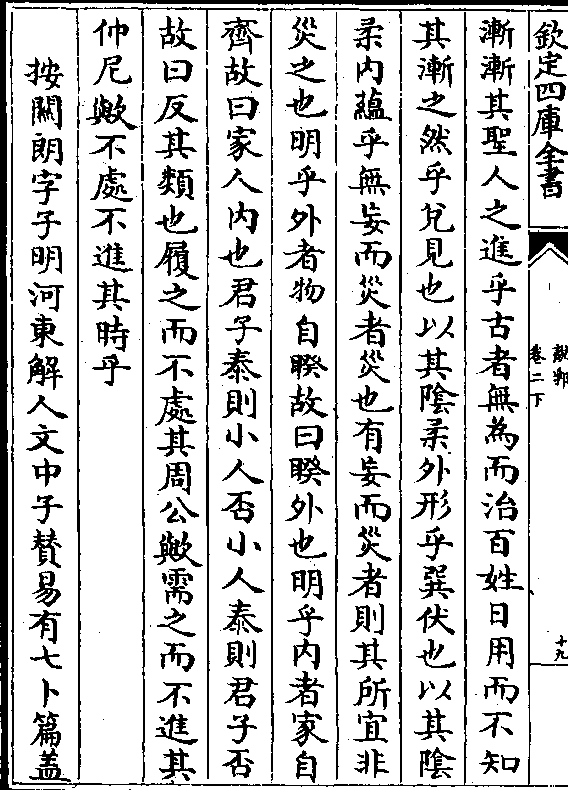 欽定四庫全書
說郛
卷二下
十九
漸漸其聖人之進乎古者無為而治百姓日用而不知
其漸之然乎兌見也以其陰柔外形乎巽伏也以其陰
柔內蘊乎無妄而災者災也有妄而災者則其所宜非
災之也明乎外者物自睽故曰睽外也明乎內者家自
齊故曰家人內也君子泰則小人否小人泰則君子否
故曰反其類也履之而不處其周公歟需之而不進其
仲尼歟不處不進其時乎
按關朗字子明河東解人文中子賛易有七卜篇盖